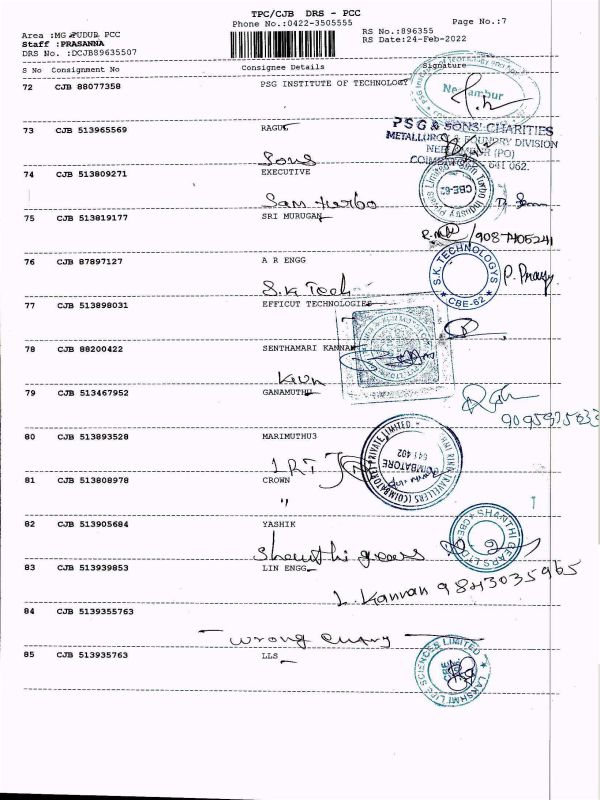 TPC/CJB DRS - PCC
Phone No.:0422-3505555
Page No.:7
Area :MG PUDUR PCC
Staff :PRASANNA
DRS No. :DCJB89635507
RS No.:896355
RS Date:24-Feb-2022
S No Consignment No Consignee Details Signature
72 CJB 88077358 PSG INSTITUTE OF TECHNOLOGY
PSG & SONS' CHARITIES
METALLURGY & FOUNDRY DIVISION
641 062.
73 CJB 513965569 RAGU
Sons
74 CJB 513809271 EXECUTIVE
CBE-62
Sam turbo
75 CJB 513819177 SRI MURUGAN
9087405241
76 CJB 87897127 A R ENGG
S.K. TECHNOLOGYS
CBE-62
S.K Tech
77 CJB 513898031 EFFICUT TECHNOLOGIES
78 CJB 88200422 SENTHAMARI KANNAN
79 CJB 513467952 GANAMUTHU
80 CJB 513893528 MARIMUTHU3
COIMBATORE
641 402
81 CJB 513808978 CROWN
"
82 CJB 513905684 YASHIK
SHANTHI GEARS LTD
CBE
Shanthi gears
83 CJB 513939853 LIN ENGG
L. Kannan 9843035965
84 CJB 5139355763
wrong entry
85 CJB 513935763 LLS
LAKSHMI LIFE SCIENCES LIMITED
CBE